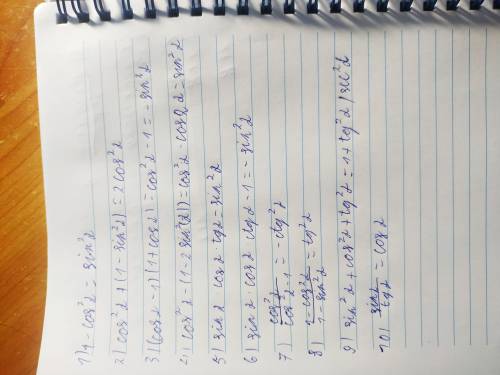 1) 1 - cos²α = sin²α
2) cos²α + (1 - sin²α) = 2cos²α
3) (cosα - 1)(1 + cosα) = cos²α - 1 = - sin²α
4) cos²α - (1 - 2 sin²(α)) = cos²α - cos2α = sin²α
5) sinα cosα tgα = sin²α
6) sinα · cosα ctgα - 1 = - sin²α
7) cos²α / cos²α - 1 = - ctg²α
8) 1 - cos²α / 1 - sin²α = tg²α
9) sin²α + cos²α + tg²α = 1 + tg²α / sec²α
10) sinα / tgα = cosα